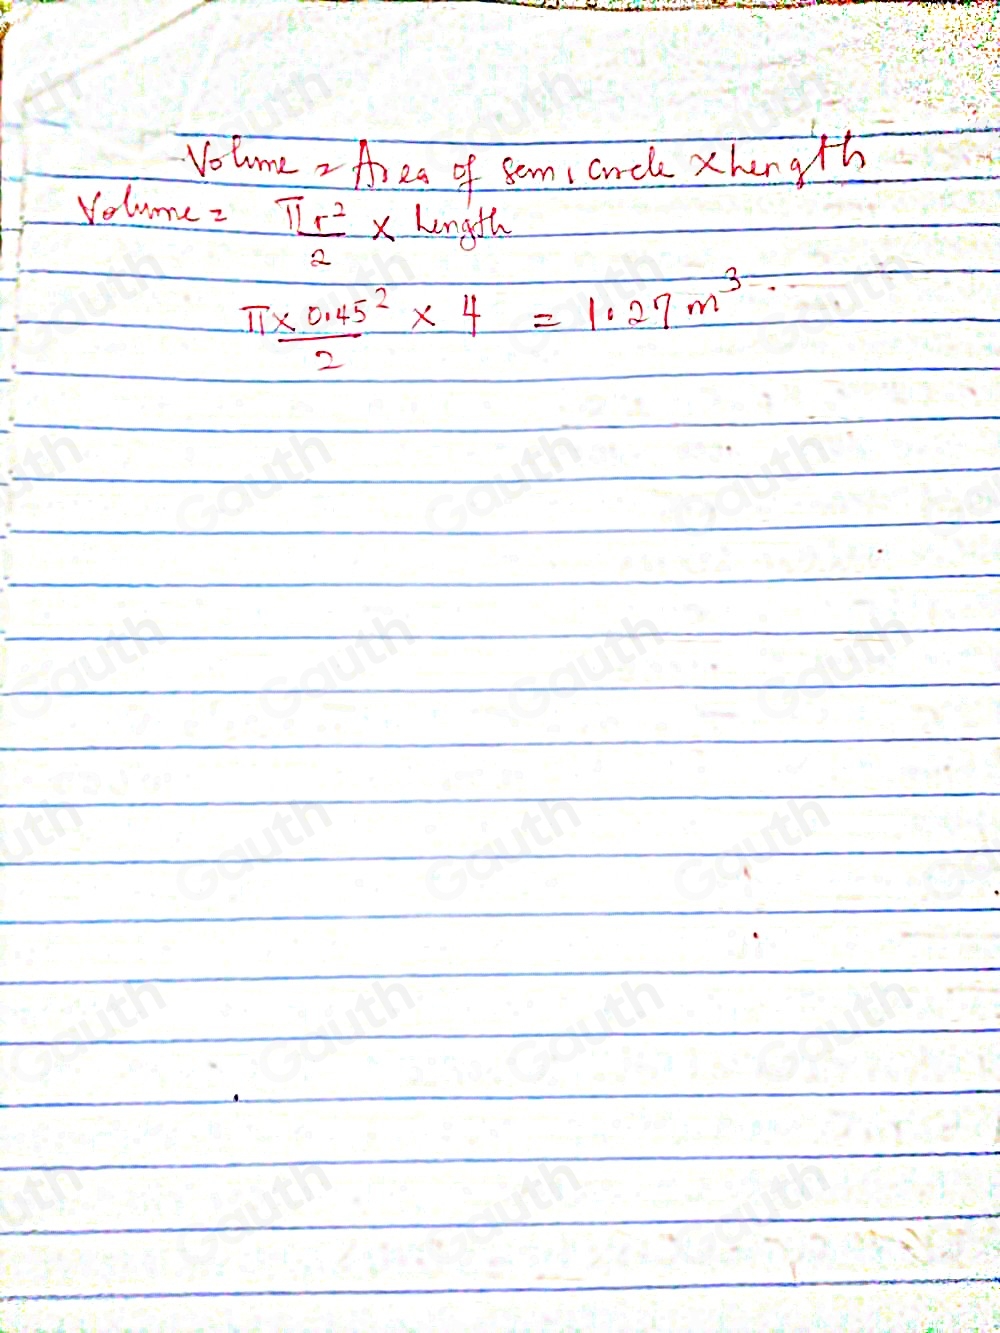 Volume = Area of semi circle x Length
Volume = πr²/2 x Length
π x 0.45²/2 x 4 = 1.27 m³